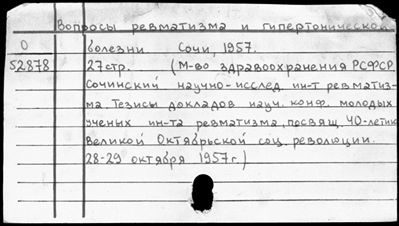 Вопросы ревматизма и гипертонической
О болезни Сочи, 1957.
52878 27стр. (М-во здравоохранения РСФСР
Сочинский научно-исслед. ин-т ревматиз-
ма. Тезисы докладов науч. конф. молодых
ученых ин-та ревматизма, посвящ. 40-летию
Великой Октябрьской соц. революции.
28-29 октября 1957г.)